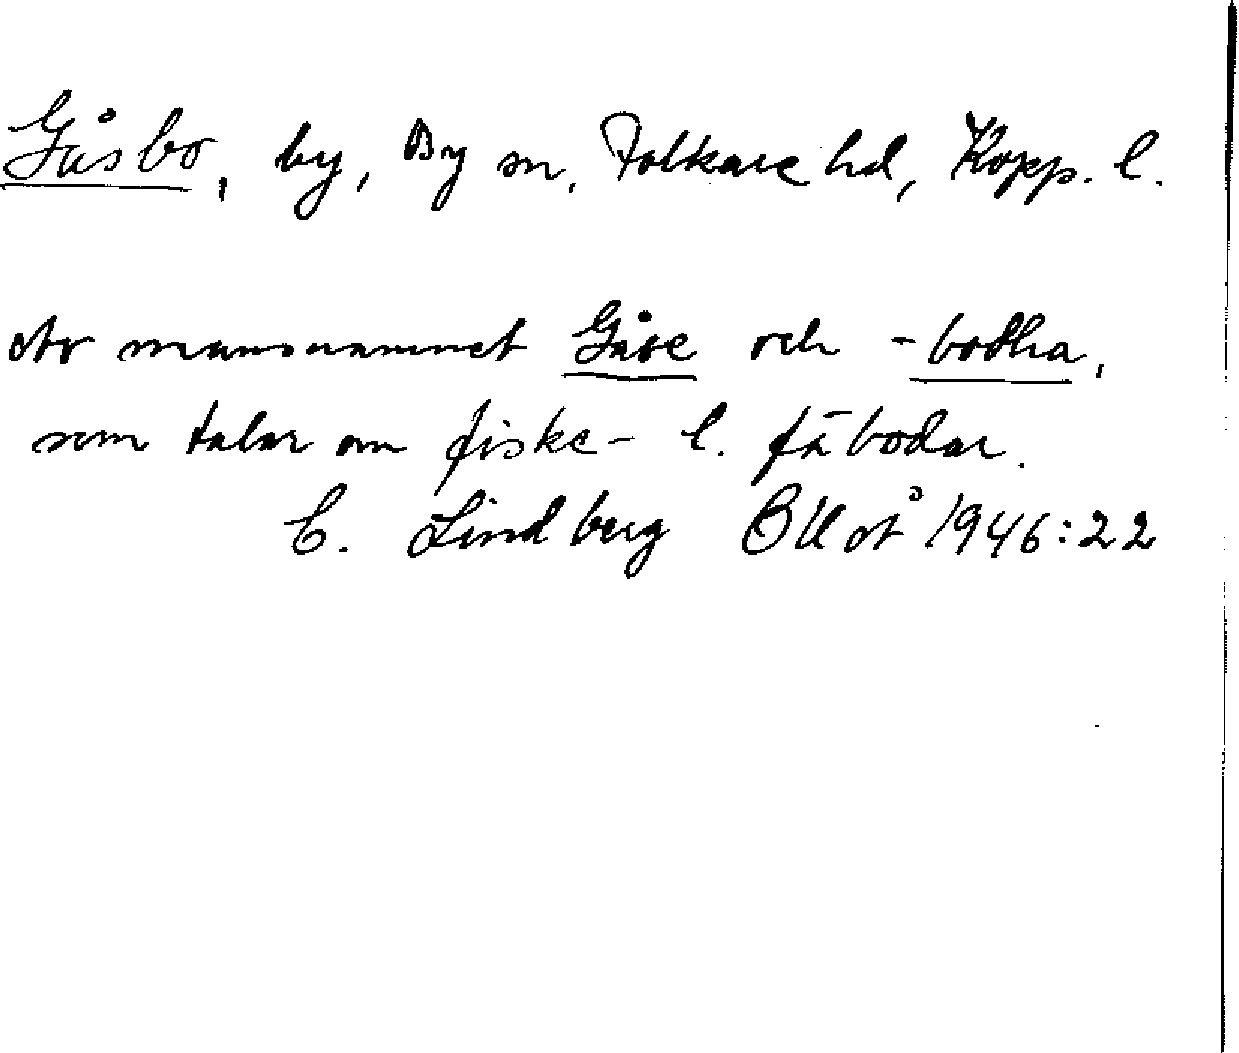 Gåsbo, by, By sn, Folkare hd, Kopp. l.
Av mansnamnet Gåse och -bodha,
som talar om fiske- l. fäbodar.
C. Lindberg 1946:22